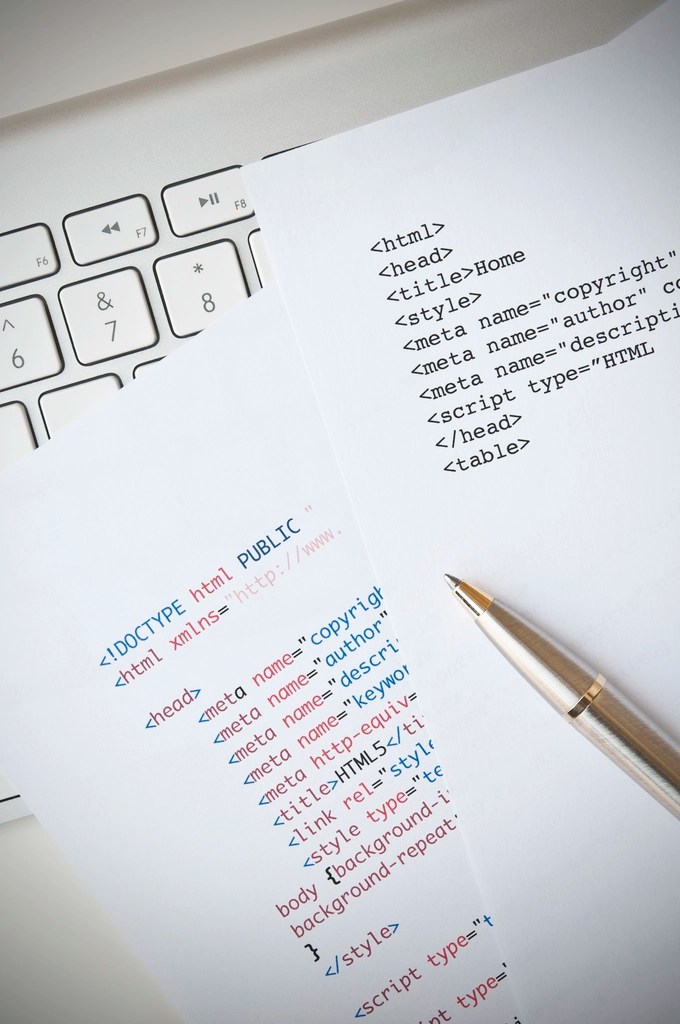 F6
F7
F8
^
6
&
7
*
8
<html>
<head>
<title>Home
<style>
<meta name="copyright"
<meta name="author" co
<meta name="descripti
<script type=”HTML
</head>
<table>
<!DOCTYPE html PUBLIC "
<html xmlns="http://www.
<head>
<meta name="copyrigh
<meta name="author"
<meta name="descri
<meta name="keywor
<meta http-equiv=
<title>HTML5</ti
<link rel="style
<style type="te
body {background-i
background-repeat:
}
</style>
<script type="t
pt type="